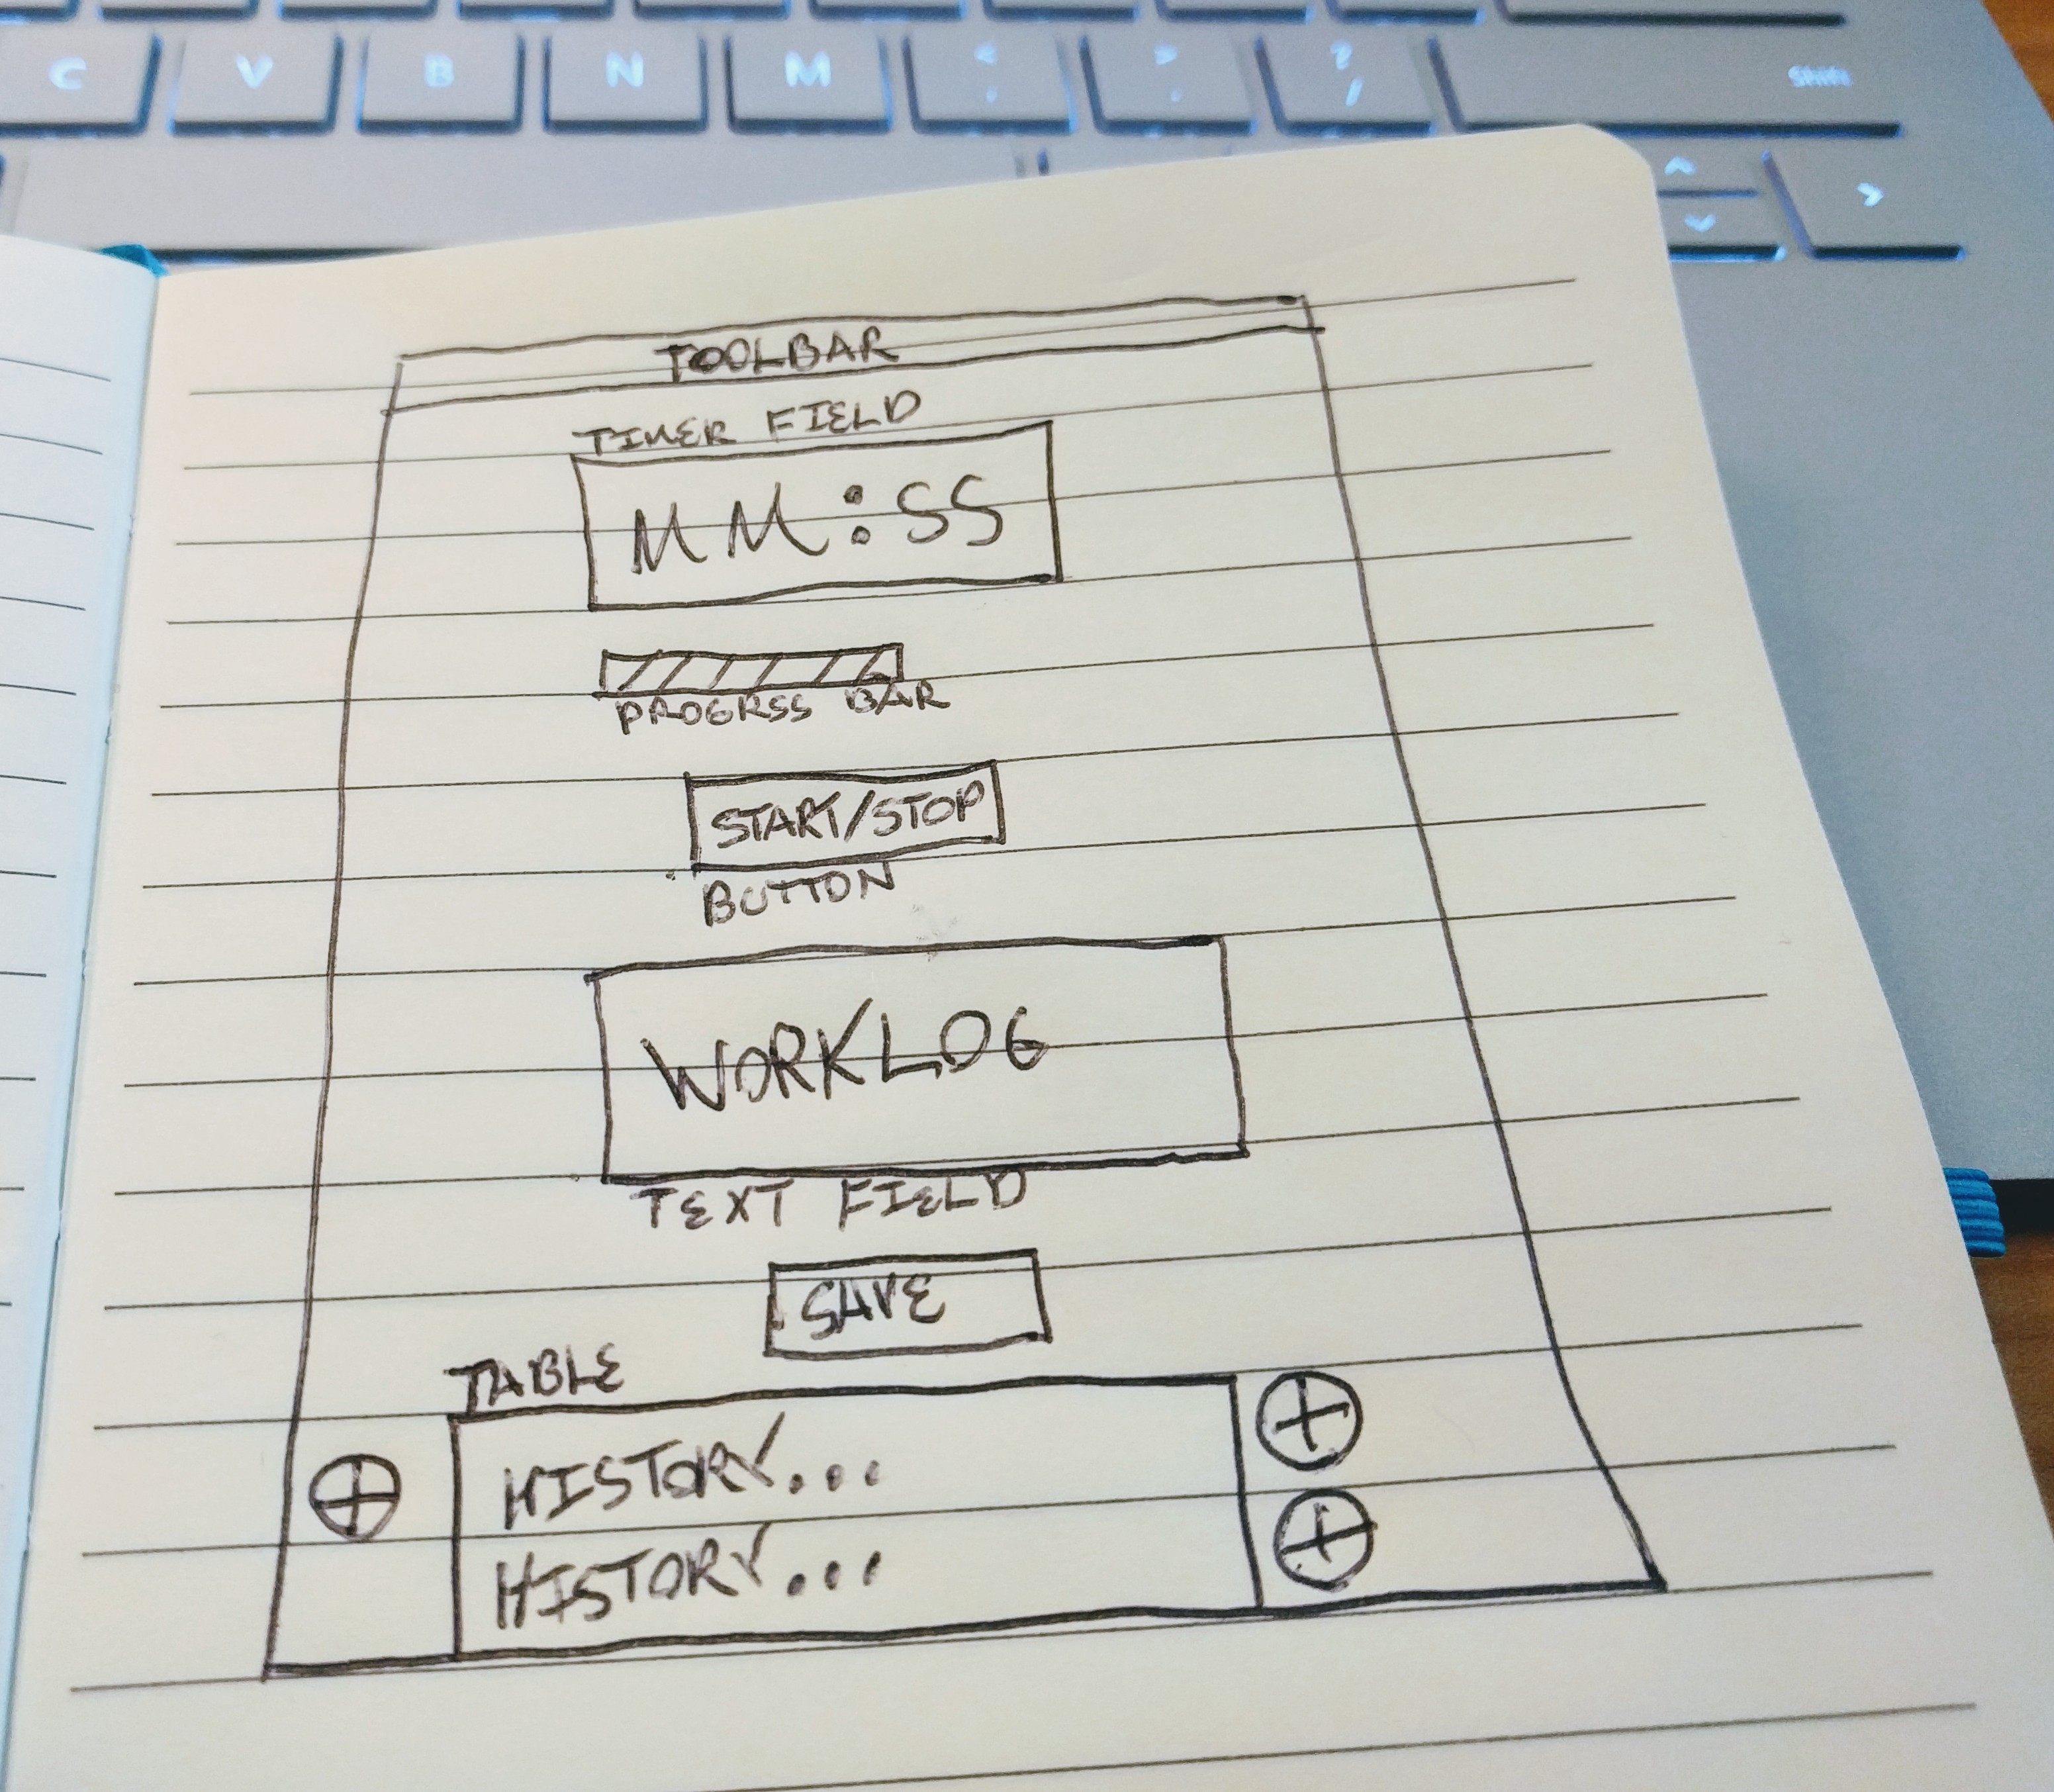 C V B N M < , > . ? / Shift
TOOLBAR
TIMER FIELD
MM:SS
PROGRSS BAR
START/STOP
BUTTON
WORKLOG
TEXT FIELD
SAVE
TABLE
HISTORY...
HISTORY...